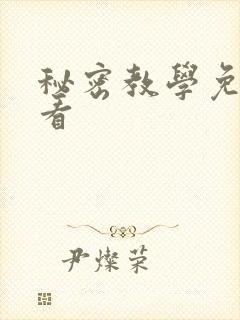 秘密教學免
看
尹燦荣